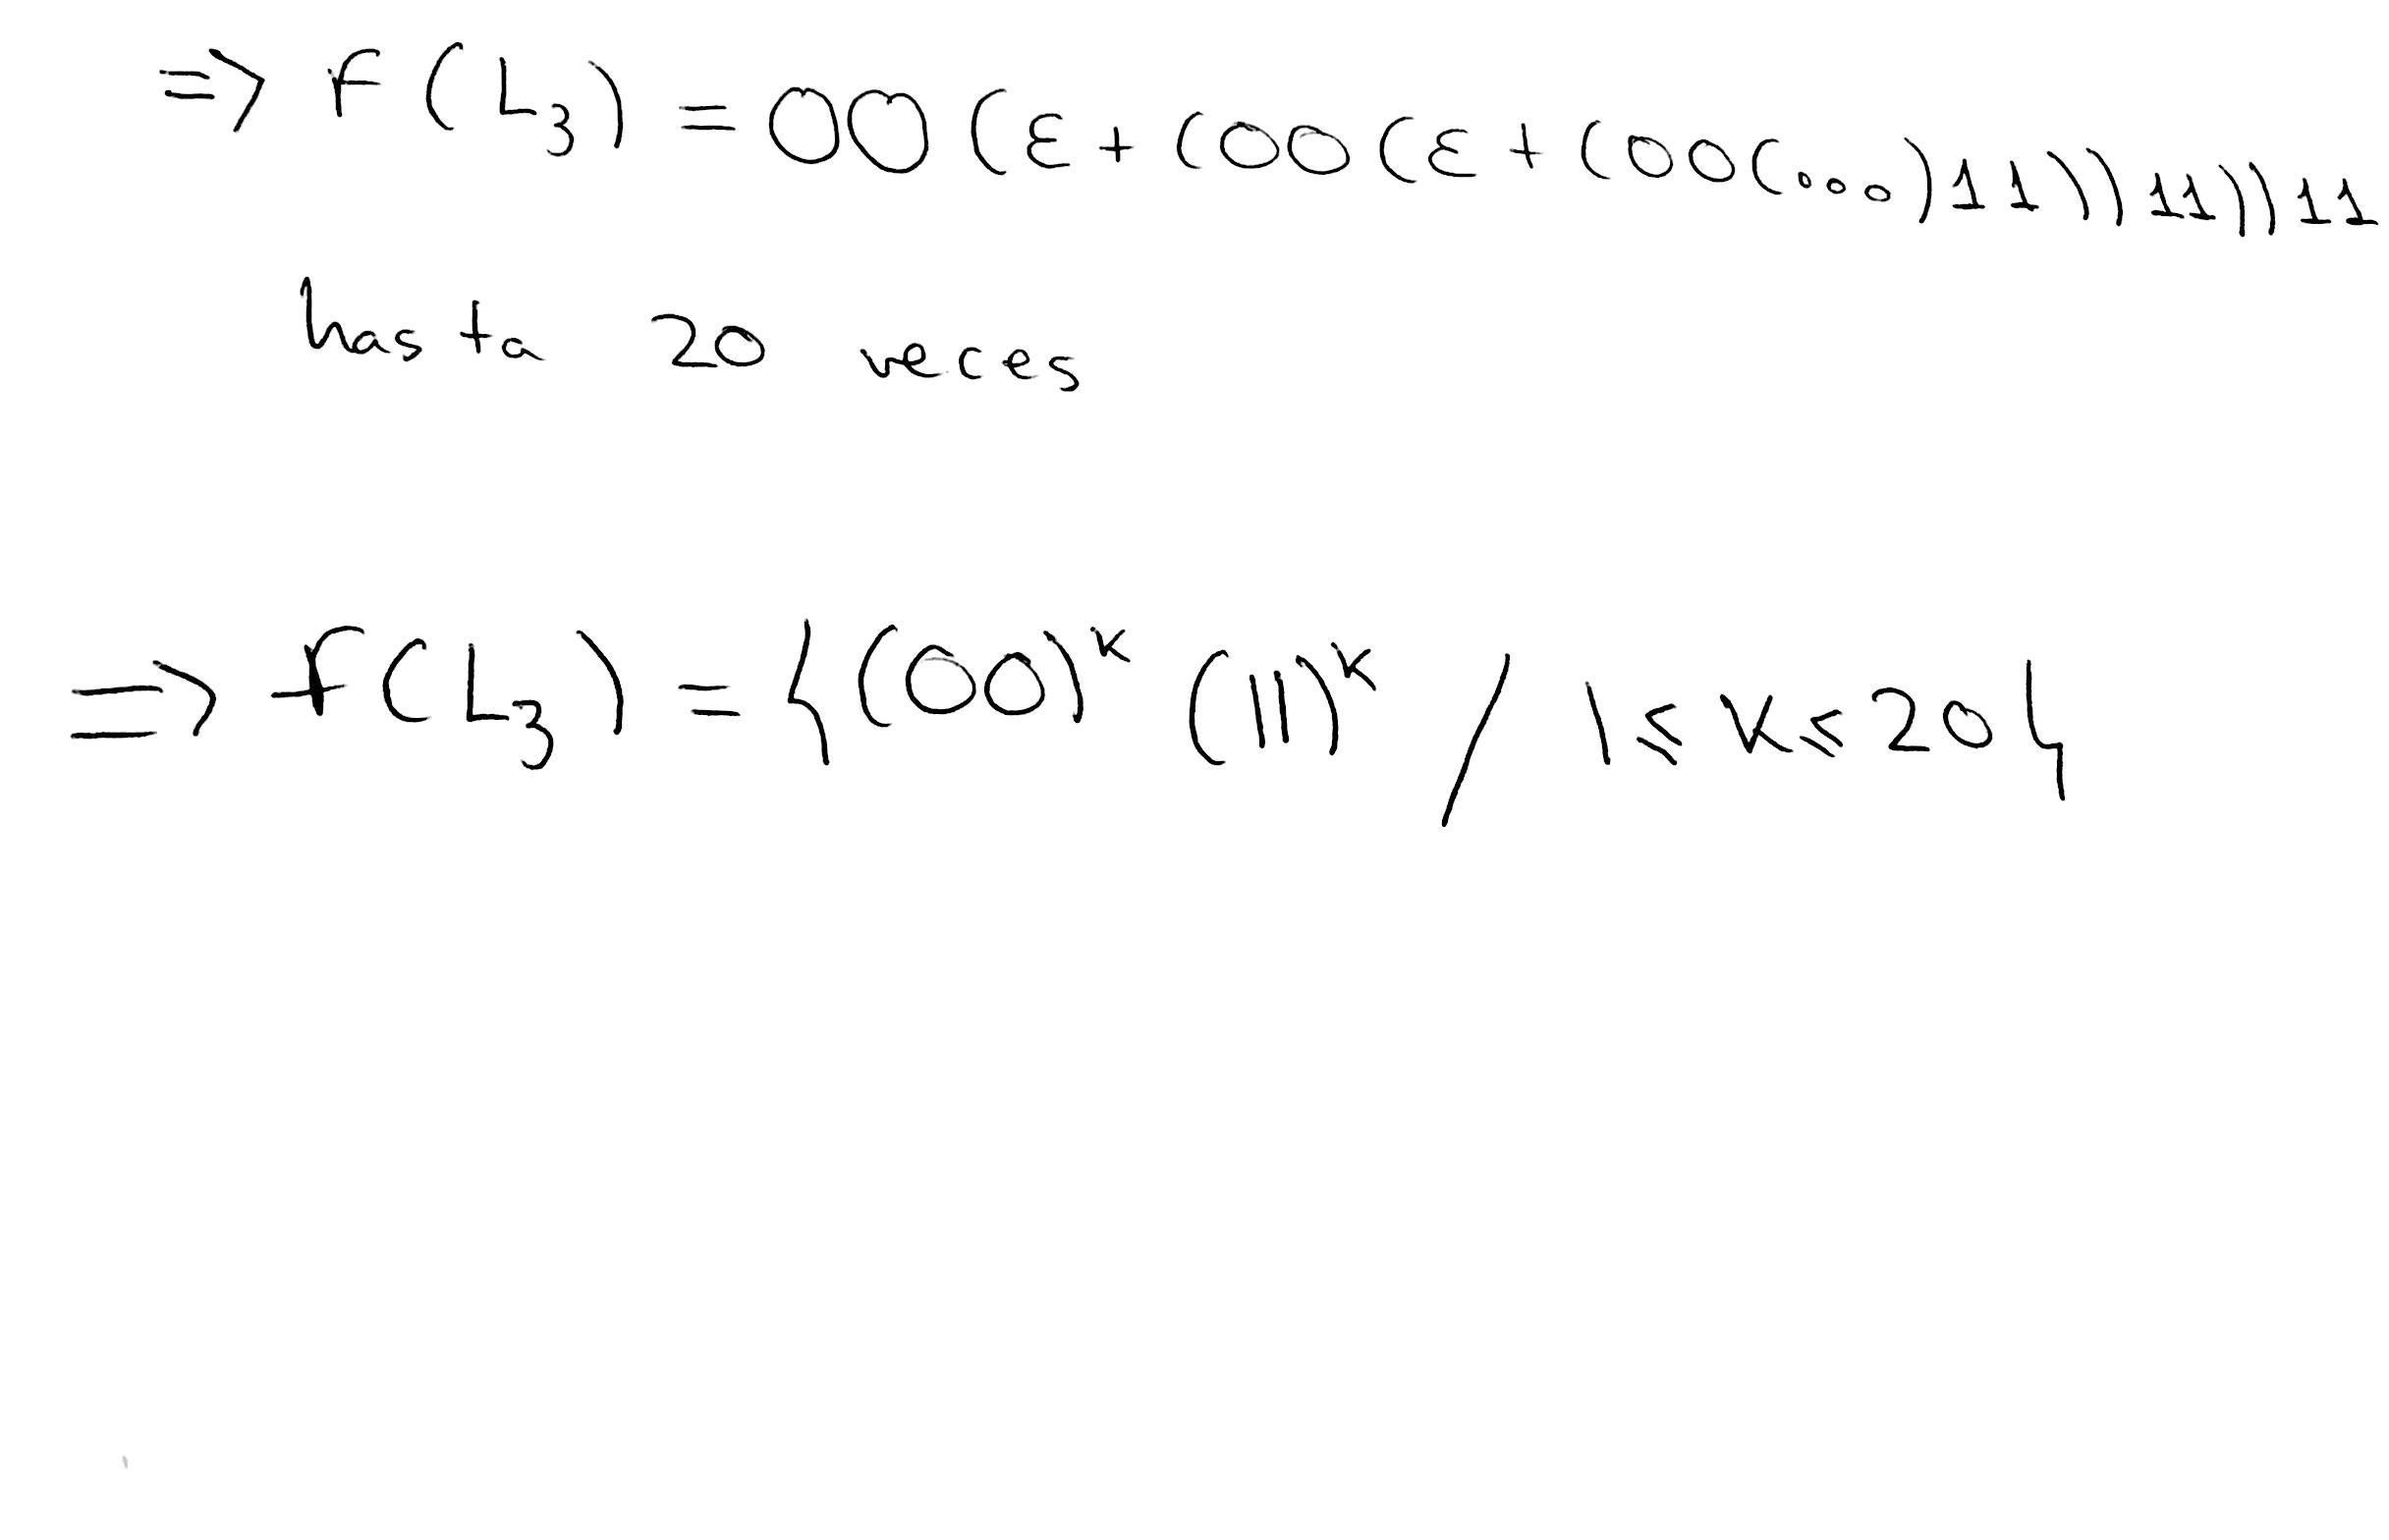 => F(L₃) = 00(ε + (00(ε + (00(...)11))11))11
hasta 20 veces
=> f(L₃) = {(00)ᵏ (11)ᵏ / 1 ≤ k ≤ 20}